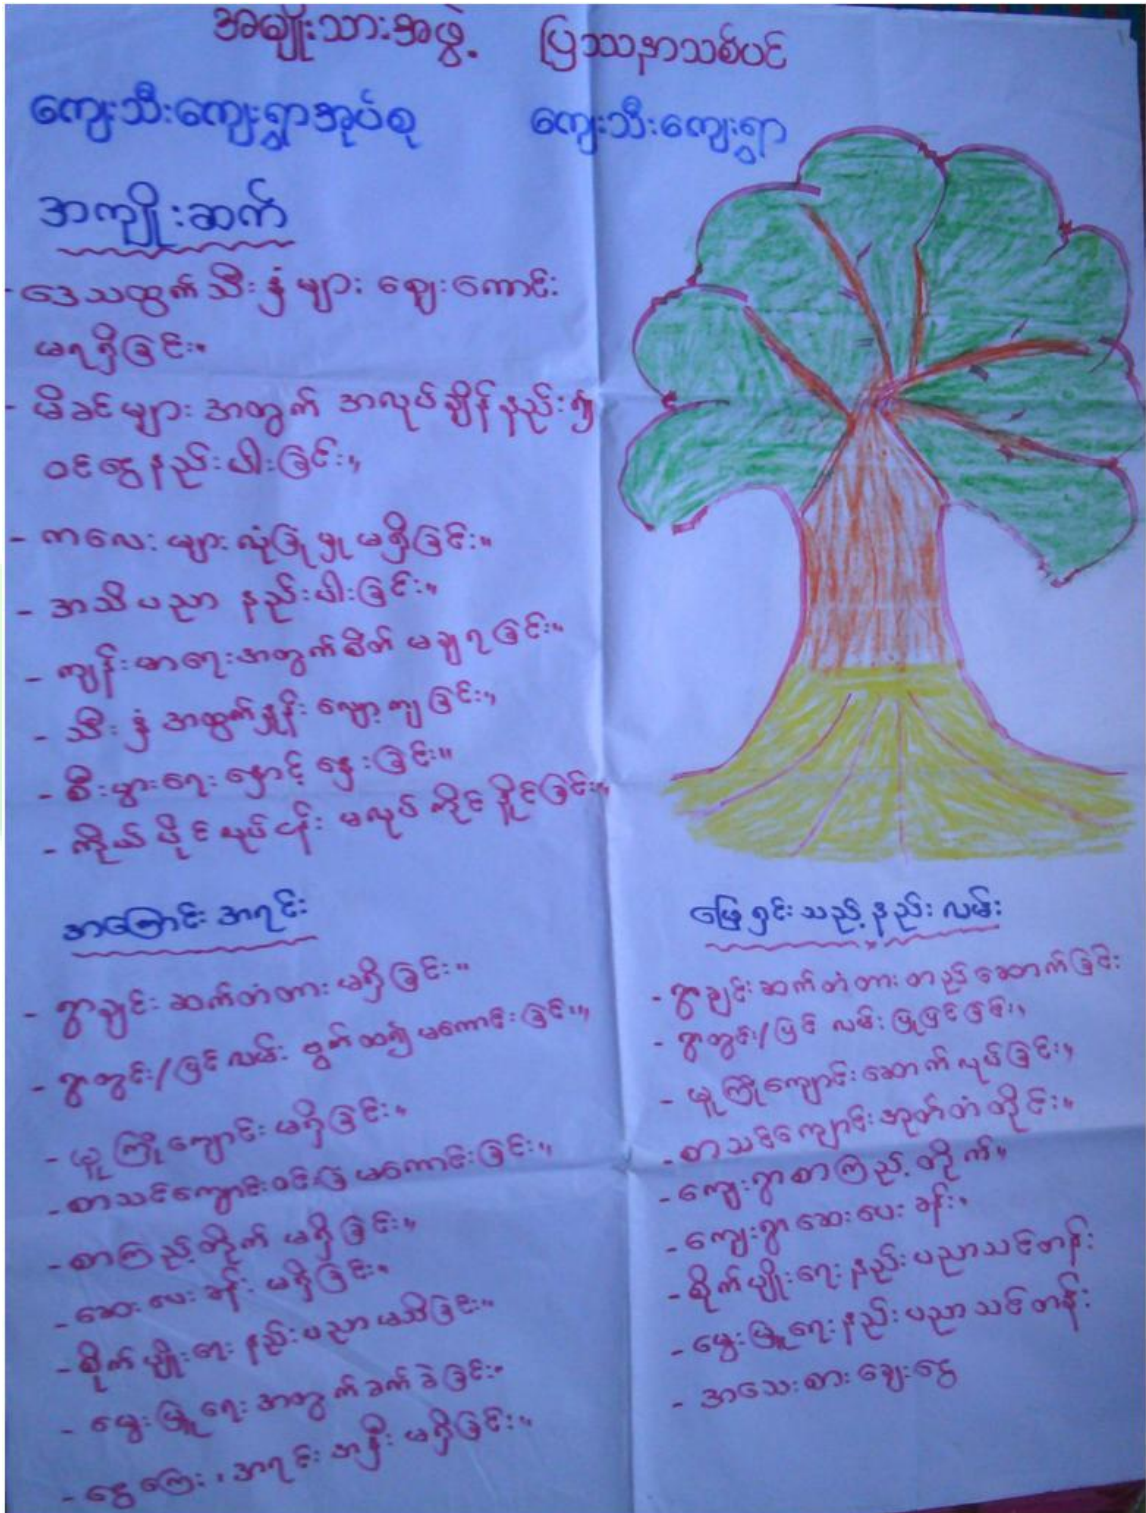 အမျိုးသားအဖွဲ့ ပြဿနာသစ်ပင်
ကျေးသီးကျေးရွာအုပ်စု ကျေးသီးကျေးရွာ
အကျိုးဆက်
- ဒေသထွက်သီးနှံများ ဈေးကောင်း
မရရှိခြင်း။
- မိခင်များ အတွက် အလုပ်ချိန်နည်း၍
ဝင်ငွေနည်းပါးခြင်း။
- ကလေးများ လုံခြုံမှု မရှိခြင်း။
- အသိပညာ နည်းပါးခြင်း။
- ကျန်းမာရေးအတွက်စိတ် မချရခြင်း။
- သီးနှံ အထွက်နှုန်း လျော့ကျခြင်း။
- စီးပွားရေး နှောင့်နှေးခြင်း။
- ကိုယ်ပိုင်လုပ်ငန်း မလုပ်ကိုင်နိုင်ခြင်း။
အကြောင်းအရင်း
- ရွာချင်းဆက်တံတား မရှိခြင်း။
- ရွာတွင်း/ပြင်လမ်း ပြတ်၍ မကောင်းခြင်း။
- မူကြိုကျောင်း မရှိခြင်း။
- စာသင်ကျောင်းဝင်းခြံ မကောင်းခြင်း။
- စာကြည့်တိုက် မရှိခြင်း။
- ဆေးပေးခန်း မရှိခြင်း။
- စိုက်ပျိုးရေး နည်းပညာ မသိခြင်း။
- မွေးမြူရေး အတွက်ခက်ခဲခြင်း။
- ငွေကြေး၊ အရင်းအနှီး မရှိခြင်း။
ဖြေရှင်းသည့်နည်းလမ်း
- ရွာချင်းဆက်တံတား တည်ဆောက်ခြင်း
- ရွာတွင်း/ပြင် လမ်းပြုပြင်ခြင်း၊
- မူကြိုကျောင်းဆောက်လုပ်ခြင်း။
- စာသင်ကျောင်းအုတ်တံတိုင်း။
- ကျေးရွာစာကြည့်တိုက်။
- ကျေးရွာဆေးပေးခန်း၊
- စိုက်ပျိုးရေးနည်းပညာသင်တန်း
- မွေးမြူရေးနည်းပညာသင်တန်း
- အသေးစားချေးငွေ